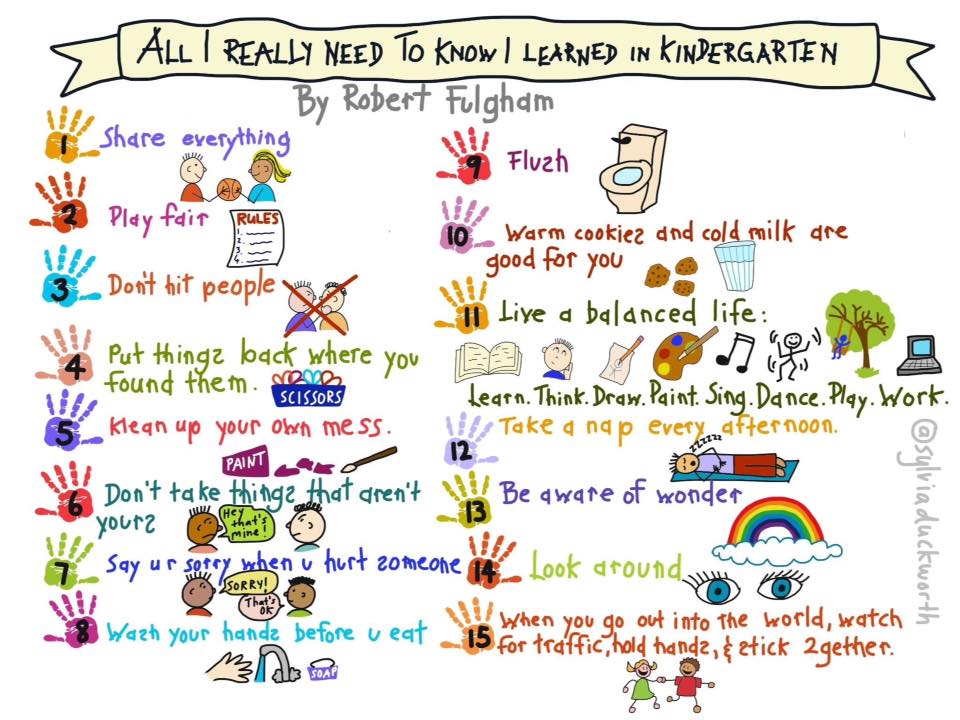 ALL I REALLY NEED TO KNOW I LEARNED IN KINDERGARTEN
By Robert Fulgham
1 Share everything
2 Play fair
RULES
1.
2.
3.
4.
3 Don't hit people
4 Put things back where you
found them.
SCISSORS
5 Klean up your own mess.
PAINT
6 Don't take things that aren't
yours
Hey
that's
mine!
7 Say u r sorry when u hurt someone
SORRY!
That's
OK
8 Wash your hands before u eat
SOAP
9 Flush
10 Warm cookies and cold milk are
good for you
11 Live a balanced life:
Learn. Think. Draw. Paint. Sing. Dance. Play. Work.
12 Take a nap every afternoon.
zzzzzz
13 Be aware of wonder
14 Look around
15 When you go out into the world, watch
for traffic, hold hands, & stick 2gether.
@sylviaduckworth